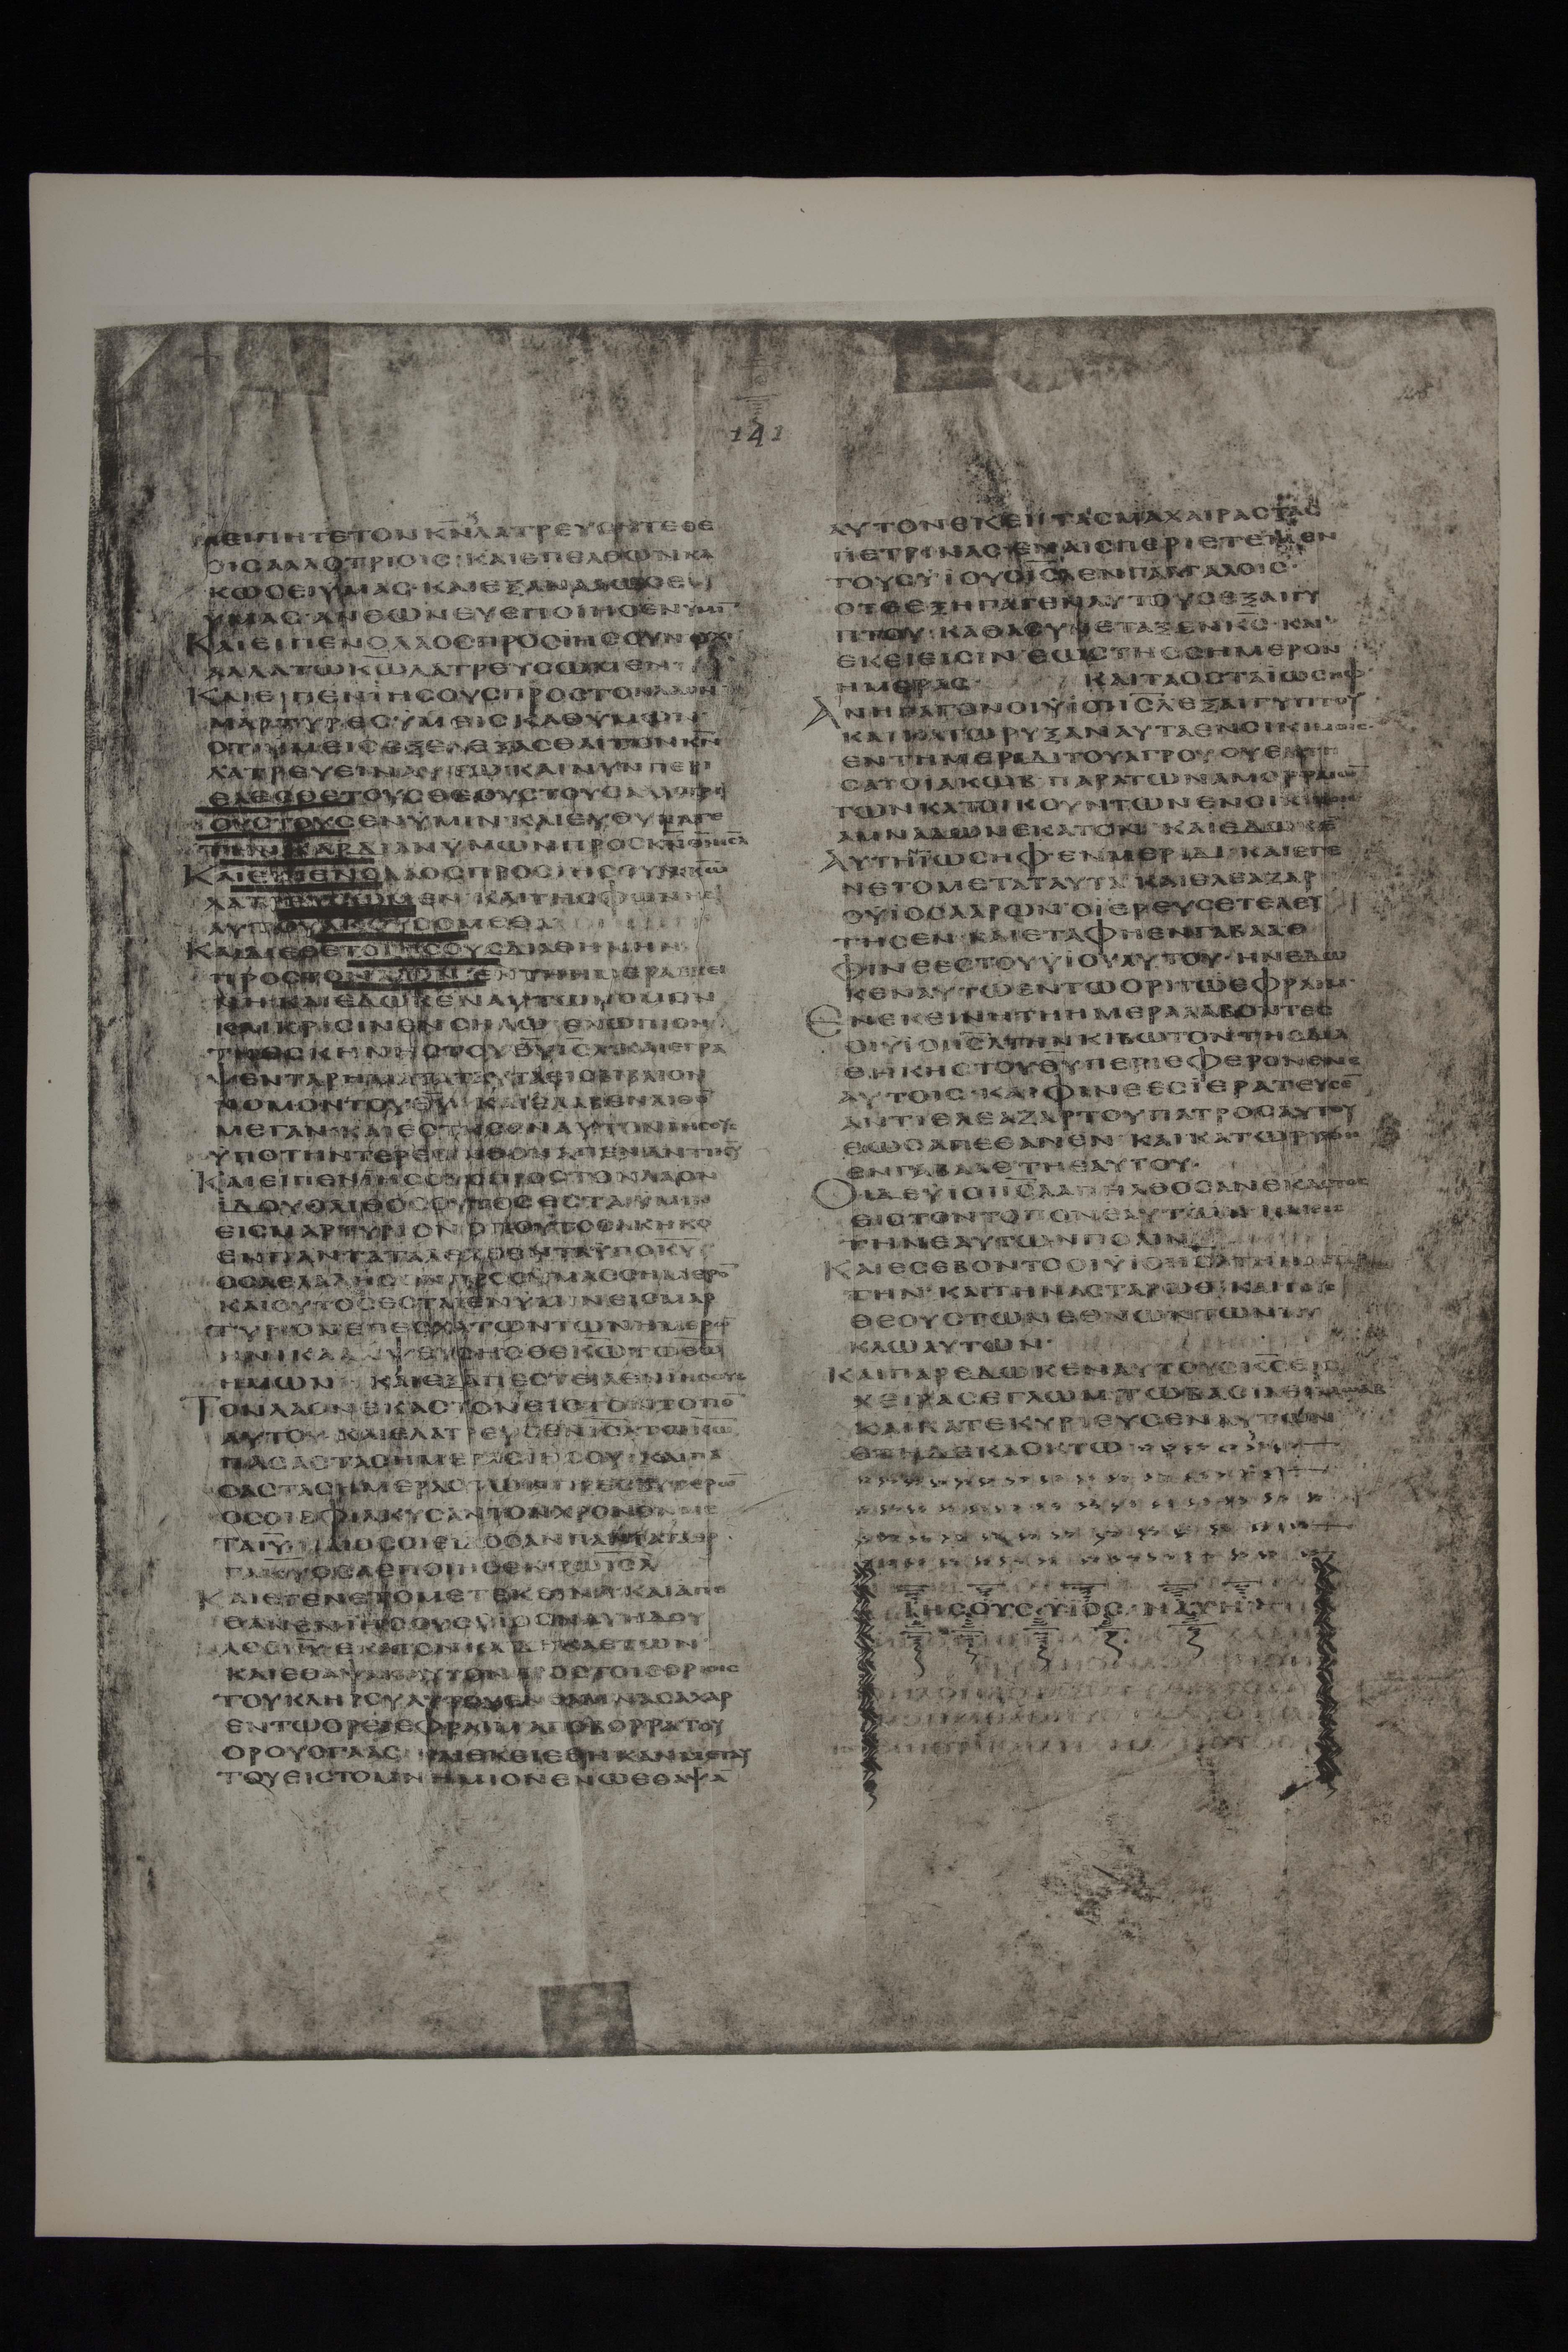 141
ΛΕΙΠΗΤΕΤΟΝΚΝ̅ΛΑΤΡΕΥϹΗΤΕΘΕ
ΟΙϹΑΛΛΟΤΡΙΟΙϹ ΚΑΙΕΠΕΛΘΩΝΚΑ
ΚΩϹΕΙΥΜΑϹ ΚΑΙΕΞΑΝΑΛΩϹΕΙ
ΥΜΑϹ ΑΝΘΩΝΕΥΕΠΟΙΗϹΕΝΥΜΑϹ
ΚΑΙΕΙΠΕΝΟΛΑΟϹΠΡΟϹΙΗϹΟΥΝΟΥΧΙ
ΑΛΛΑΤΩΚΩ̅ΛΑΤΡΕΥϹΩΜΕΝ
ΚΑΙΕΙΠΕΝΙΗϹΟΥϹΠΡΟϹΤΟΝΛΑΟΝ
ΜΑΡΤΥΡΕϹΥΜΕΙϹΚΑΘΥΜΩΝ
ΟΤΙΥΜΕΙϹΕΞΕΛΕΞΑϹΘΑΙΤΟΝΚΝ̅
ΛΑΤΡΕΥΕΙΝΑΥΤΩ ΚΑΙΝΥΝΠΕΡΙ
ΕΛΕϹΘΕΤΟΥϹΘΕΟΥϹΤΟΥϹΑΛΛΟΤΡΙ
ΟΥϹΤΟΥϹΕΝΥΜΙΝ ΚΑΙΕΥΘΥΝΑΤΕ
ΤΗΝΚΑΡΔΙΑΝΥΜΩΝΠΡΟϹΚΝ̅ΘΝ̅ΙΗΛ̅
ΚΑΙΕΙΠΕΝΟΛΑΟϹΠΡΟϹΙΗϹΟΥΝΚΩ̅
ΛΑΤΡΕΥϹΟΜΕΝ ΚΑΙΤΗϹΦΩΝΗϹ
ΑΥΤΟΥΑΚΟΥϹΟΜΕΘΑ
ΚΑΙΔΙΕΘΕΤΟΙΗϹΟΥϹΔΙΑΘΗΚΗΝ
ΠΡΟϹΤΟΝΛΑΟΝΕΝΤΗΗΜΕΡΑΕΚΕΙ
ΝΗ ΚΑΙΕΔΩΚΕΝΑΥΤΩΝΟΜΟΝ
ΚΑΙΚΡΙϹΙΝΕΝϹΗΛΩ ΕΝΩΠΙΟΝ
ΤΗϹϹΚΗΝΗϹΤΟΥΘΥ̅ΙΗΛ̅ ΚΑΙΕΓΡΑ
ΨΕΝΤΑΡΗΜΑΤΑΤΑΥΤΑΕΙϹΒΙΒΛΙΟΝ
ΝΟΜΟΝΤΟΥΘΥ̅ ΚΑΙΕΛΑΒΕΝΛΙΘΟ̅
ΜΕΓΑΝ ΚΑΙΕϹΤΗϹΕΝΑΥΤΟΝΙΗϹΟΥϹ
ΥΠΟΤΗΝΤΕΡΕΜΙΝΘΟΝΑΠΕΝΑΝΤΙΚΥ̅
ΚΑΙΕΙΠΕΝΙΗϹΟΥϹΠΡΟϹΤΟΝΛΑΟΝ
ΙΔΟΥΟΛΙΘΟϹΟΥΤΟϹΕϹΤΑΙΥΜΙΝ
ΕΙϹΜΑΡΤΥΡΙΟΝΟΤΙΟΥΤΟϹΑΚΗΚΟ
ΕΝΠΑΝΤΑΤΑΛΕΧΘΕΝΤΑΥΠΟΚΥ̅
ΟϹΑΕΛΑΛΗϹΕΝΠΡΟϹΥΜΑϹϹΗΜΕΡΟ̅
ΚΑΙΟΥΤΟϹΕϹΤΑΙΕΝΥΜΙΝΕΙϹΜΑΡ
ΤΥΡΙΟΝΕΠΕϹΧΑΤΩΝΤΩΝΗΜΕΡΩ̅
ΗΝΙΚΑΑΝΨΕΥϹΗϹΘΕΚΩ̅ΤΩΘΩ̅
ΗΜΩΝ ΚΑΙΕΞΑΠΕϹΤΕΙΛΕΝΙΗϹΟΥϹ
ΤΟΝΛΑΟΝΕΚΑϹΤΟΝΕΙϹΤΟΝΤΟΠΟ̅
ΑΥΤΟΥ ΚΑΙΕΛΑΤΡΕΥϹΕΝΙΗΛ̅ΤΩΚΩ̅
ΠΑϹΑϹΤΑϹΗΜΕΡΑϹΙΗϹΟΥ ΚΑΙΠΑ
ϹΑϹΤΑϹΗΜΕΡΑϹΤΩΝΠΡΕϹΒΥΤΕΡΩ̅
ΟϹΟΙΕΦΙΛΚΥϹΑΝΤΟΝΧΡΟΝΟΝΜΕ
ΤΑΙΥ̅ ΚΑΙΟϹΟΙΕΙΔΟϹΑΝΠΑΝΤΑΤΑΕΡ
ΓΑΚΥ̅ΟϹΑΕΠΟΙΗϹΕΝΤΩΙΗΛ̅
ΚΑΙΕΓΕΝΕΤΟΜΕΤΕΚΕΙΝΑ ΚΑΙΑΠΕ
ΘΑΝΕΝΙΗϹΟΥϹΥΙΟϹΝΑΥΗΔΟΥ
ΛΟϹΚΥ̅ΕΚΑΤΟΝΚΑΙΔΕΚΑΕΤΩΝ
ΚΑΙΕΘΑΨΑΝΑΥΤΟΝΠΡΟϹΤΟΙϹΟΡΙΟΙϹ
ΤΟΥΚΛΗΡΟΥΑΥΤΟΥΕΝΘΑΜΝΑϹΑΧΑΡ
ΕΝΤΩΟΡΕΙΕΦΡΑΙΜΑΠΟΒΟΡΡΑΤΟΥ
ΟΡΟΥϹΓΑΑϹ ΚΑΙΕΚΕΙΕΘΗΚΑΝΜΕΤΑΥ
ΤΟΥΕΙϹΤΟΜΝΗΜΙΟΝΕΝΩΕΘΑΨΑ̅
ΑΥΤΟΝΕΚΕΙΤΑϹΜΑΧΑΙΡΑϹΤΑϹ
ΠΕΤΡΙΝΑϹΕΝΑΙϹΠΕΡΙΕΤΕΜΕΝ
ΤΟΥϹΥΙΟΥϹΙΗΛ̅ΕΝΓΑΛΓΑΛΟΙϹ
ΟΤΕΕΞΗΓΑΓΕΝΑΥΤΟΥϹΕΞΑΙΓΥ
ΠΤΟΥ ΚΑΘΑϹΥΝΕΤΑΞΕΝΚϹ̅ ΚΑΙ
ΕΚΕΙΕΙϹΙΝΕΩϹΤΗϹϹΗΜΕΡΟΝ
ΗΜΕΡΑϹ ΚΑΙΤΑΟϹΤΑΙΩϹΗΦ
ΑΝΗΓΑΓΟΝΟΙΥΙΟΙΙΗΛ̅ΕΞΑΙΓΥΠΤΟΥ
ΚΑΙΚΑΤΩΡΥΞΑΝΑΥΤΑΕΝϹΙΚΙΜΟΙϹ
ΕΝΤΗΜΕΡΙΔΙΤΟΥΑΓΡΟΥΟΥΕΚΤΗ
ϹΑΤΟΙΑΚΩΒ ΠΑΡΑΤΩΝΑΜΟΡΡΑΙΩ̅
ΤΩΝΚΑΤΟΙΚΟΥΝΤΩΝΕΝϹΙΚΙΜΟΙϹ
ΑΜΝΑΔΩΝΕΚΑΤΟΝ ΚΑΙΕΔΩΚΕ̅
ΑΥΤΗΙΩϹΗΦΕΝΜΕΡΙΔΙ ΚΑΙΕΓΕ
ΝΕΤΟΜΕΤΑΤΑΥΤΑ ΚΑΙΕΛΕΑΖΑΡ
ΟΥΙΟϹΑΑΡΩΝΟΙΕΡΕΥϹΕΤΕΛΕΥ
ΤΗϹΕΝ ΚΑΙΕΤΑΦΗΕΝΓΑΒΑΑΘ
ΦΙΝΕΕϹΤΟΥΥΙΟΥΑΥΤΟΥ ΗΝΕΔΩ
ΚΕΝΑΥΤΩΕΝΤΩΟΡΙΤΩΕΦΡΑΙΜ
ΕΝΕΚΕΙΝΗΤΗΗΜΕΡΑΛΑΒΟΝΤΕϹ
ΟΙΥΙΟΙΙΗΛ̅ΤΗΝΚΙΒΩΤΟΝΤΗϹΔΙΑ
ΘΗΚΗϹΤΟΥΘΥ̅ΠΕΡΙΕΦΕΡΟΝΕΝΕ
ΑΥΤΟΙϹ ΚΑΙΦΙΝΕΕϹΙΕΡΑΤΕΥϹΕ̅
ΑΝΤΙΕΛΕΑΖΑΡΤΟΥΠΑΤΡΟϹΑΥΤΟΥ
ΕΩϹΑΠΕΘΑΝΕΝ ΚΑΙΚΑΤΩΡΥΓΗ
ΕΝΓΑΒΑΑΘΤΗΕΑΥΤΟΥ
ΟΙΔΕΥΙΟΙΙΗΛ̅ΑΠΗΛΘΟϹΑΝΕΚΑϹΤΟϹ
ΕΙϹΤΟΝΤΟΠΟΝΕΑΥΤΩΝ ΚΑΙΕΙϹ
ΤΗΝΕΑΥΤΩΝΠΟΛΙΝ
ΚΑΙΕϹΕΒΟΝΤΟΟΙΥΙΟΙΙΗΛ̅ΤΗΝΑϹΤΑΡ
ΤΗΝ ΚΑΙΤΗΝΑϹΤΑΡΩΘ ΚΑΙΤΟΥϹ
ΘΕΟΥϹΤΩΝΕΘΝΩΝΤΩΝΚΥ
ΚΛΩΑΥΤΩΝ
ΚΑΙΠΑΡΕΔΩΚΕΝΑΥΤΟΥϹΚϹ̅ΕΙϹ
ΧΕΙΡΑϹΕΓΛΩΜ ΤΩΒΑϹΙΛΕΙΜΩΑΒ
ΚΑΙΚΑΤΕΚΥΡΙΕΥϹΕΝΑΥΤΩΝ
ΕΤΗΔΕΚΑΟΚΤΩ
ΙΗϹΟΥϹ ΥΙΟϹ ΝΑΥΗ